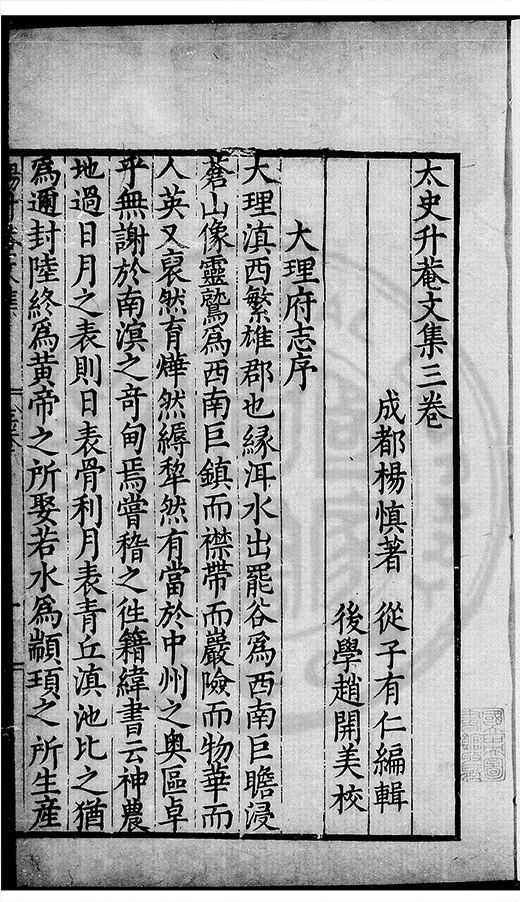 太史升菴文集三卷
成都楊慎著 從子有仁編輯
後學趙開美校
大理府志序
大理滇西繁雄郡也縁洱水出罷谷爲西南巨瞻浸
蒼山像靈鷲爲西南巨鎮而襟帶而巖險而物華而
人英又裒然育燁然縟犁然有當於中州之奧區卓
乎無謝於南溟之竒甸焉嘗稽之徃籍緯書云神農
地過日月之表則日表骨利月表青丘滇池比之猶
爲邇封陸終爲黃帝之所娶若水爲顓頊之所生産